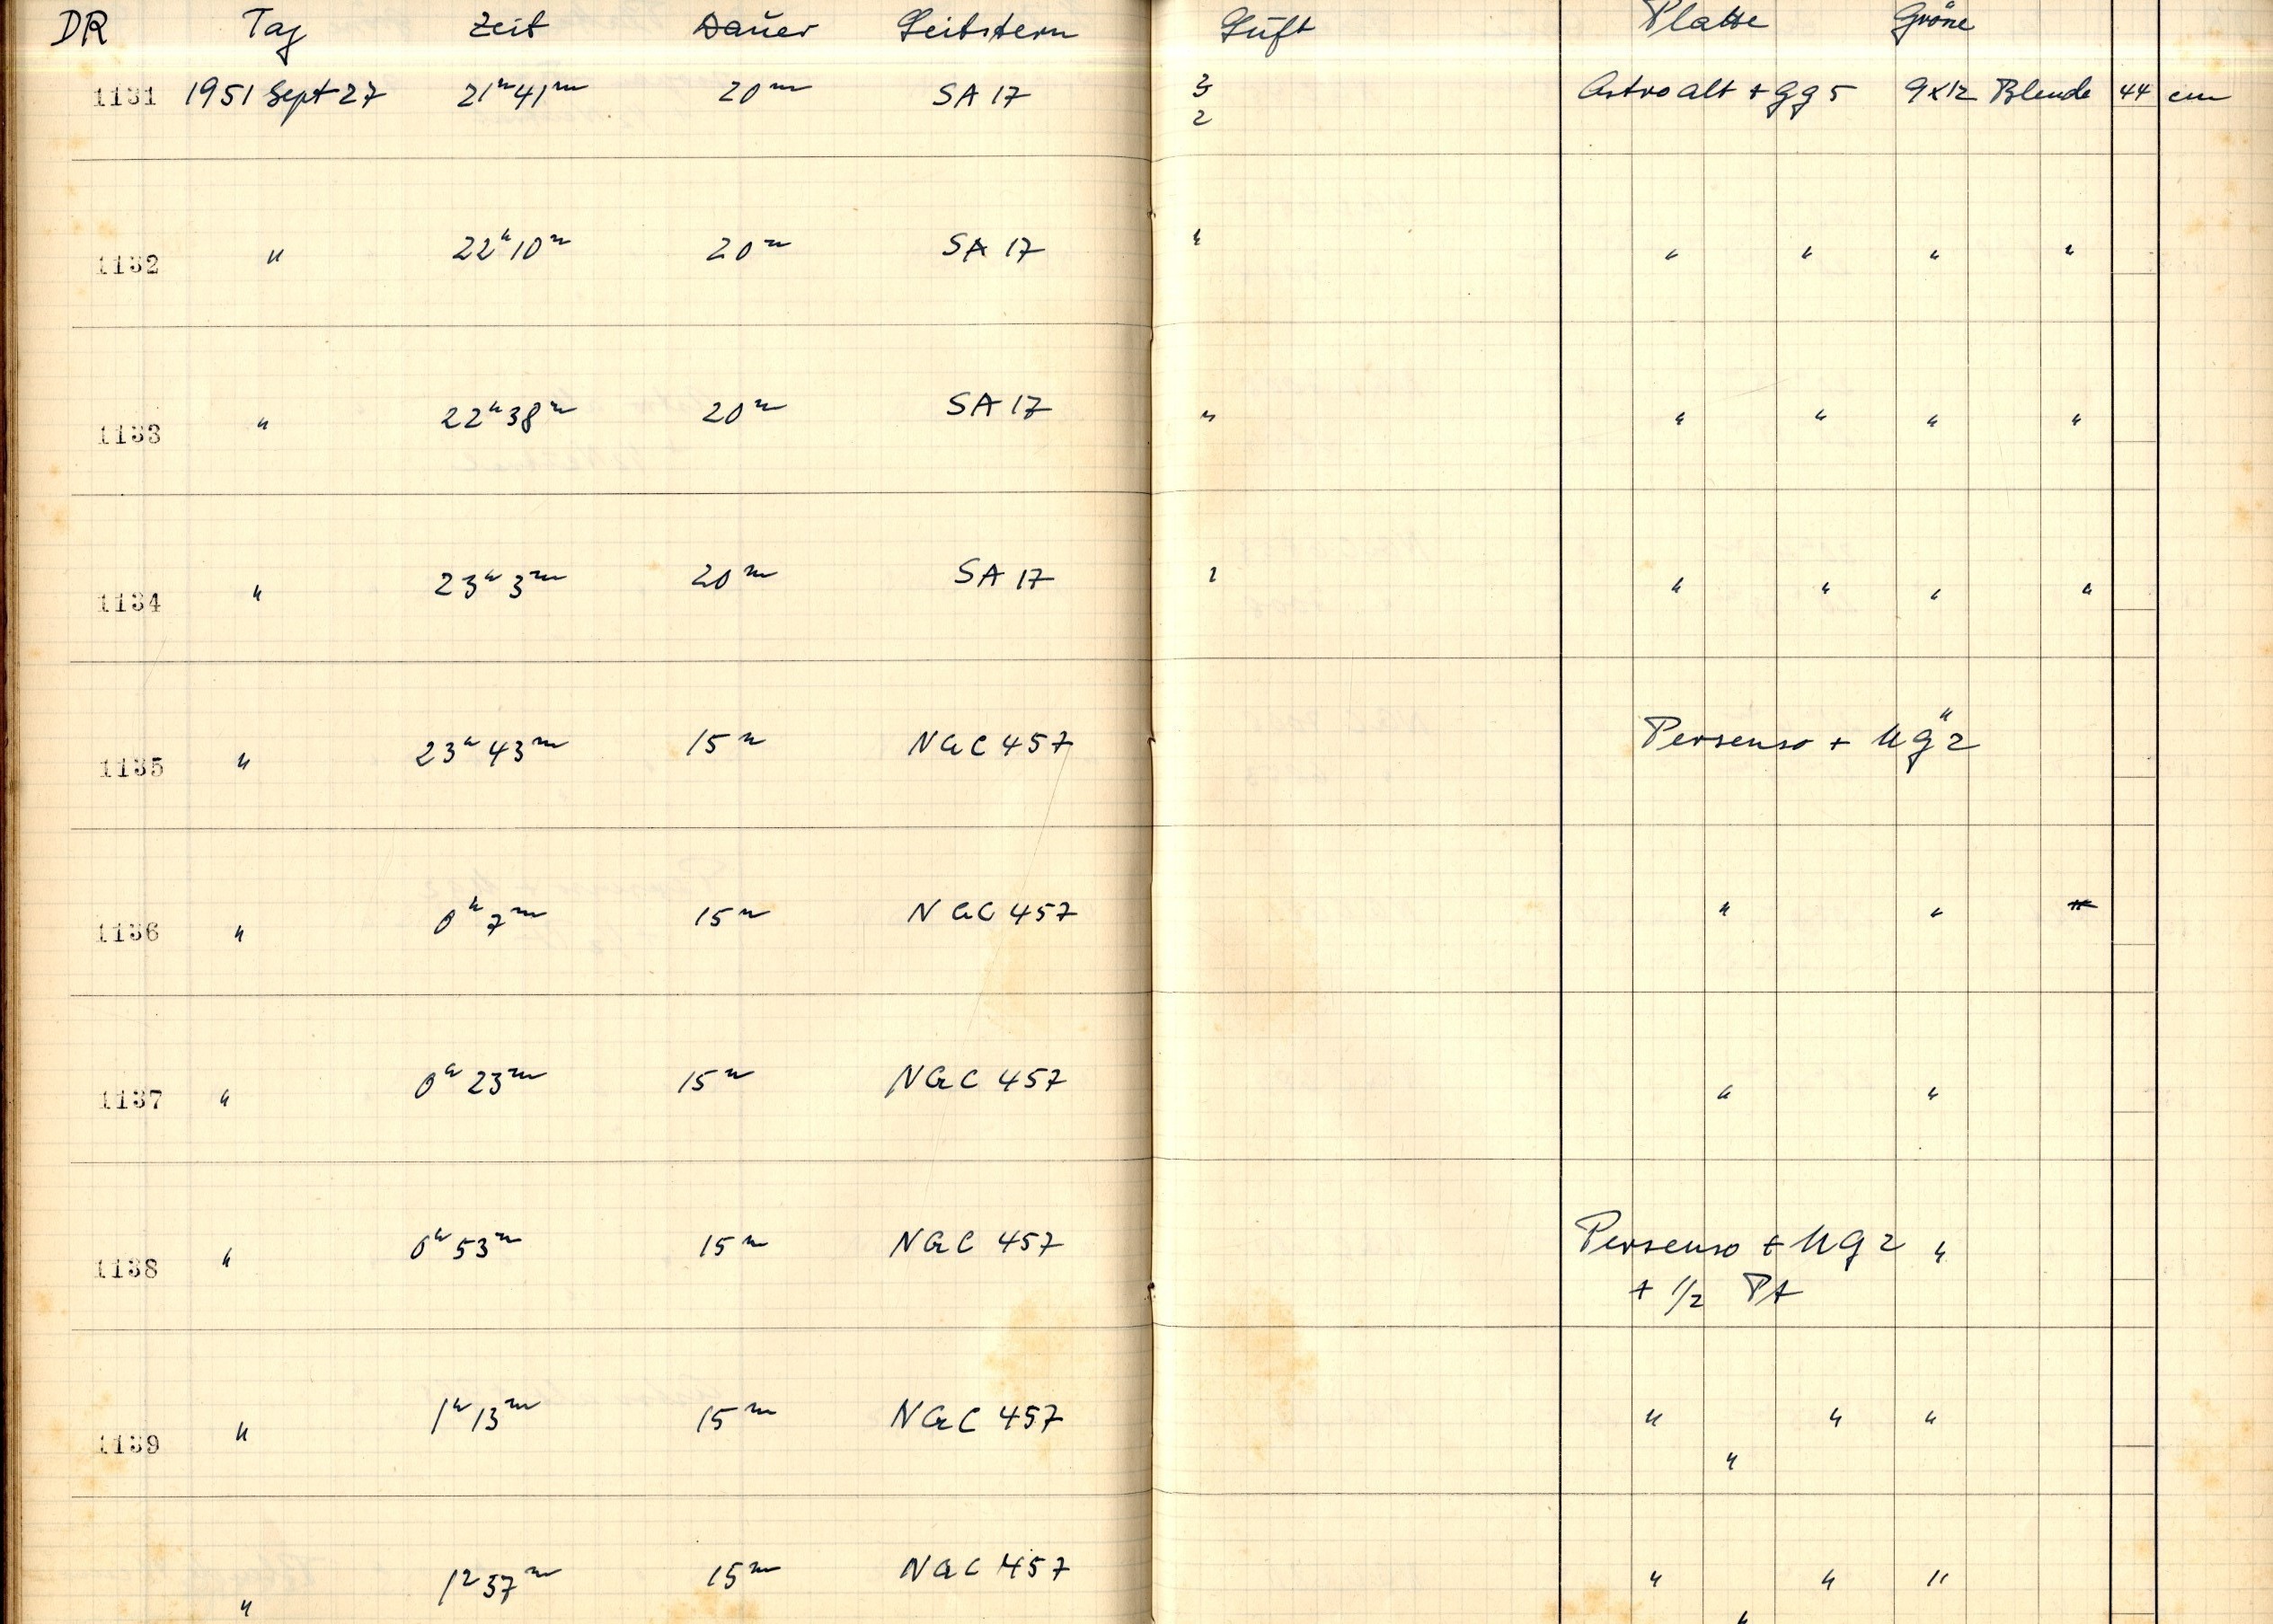 DR Tag Zeit Dauer Leitstern Luft Platte Grösse
1131 1951 Sept 27 21h41m 20m SA 17 3 Astro alt + gg 5 9x12 Blende 44 cm
2
1132 " 22h10m 20m SA 17 " " " " "
1133 " 22h38m 20m SA 17 " " " " "
1134 " 23h3m 20m SA 17 " " " "
1135 " 23h43m 15m NGC 457 Persenso + Ug 2 "
1136 " 0h7m 15m NGC 457 " "
1137 " 0h23m 15m NGC 457 " "
1138 " 0h53m 15m NGC 457 Persenso + Ug 2 "
+ 1/2 Pt
1139 " 1h13m 15m NGC 457 " " "
"
" 1h37m 15m NGC 457 " " "
"